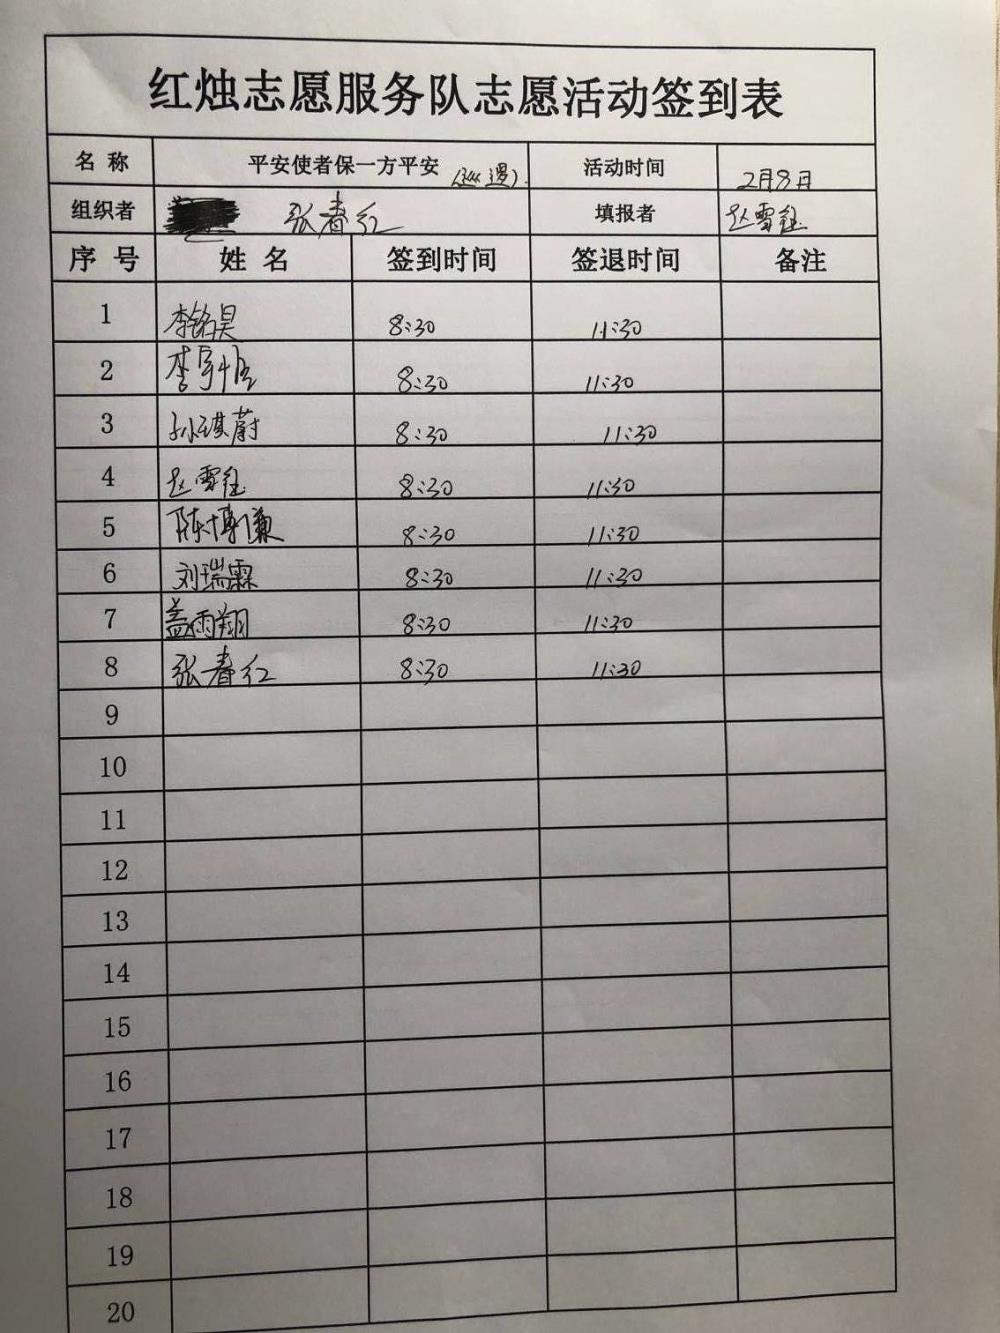 红烛志愿服务队志愿活动签到表
名称 平安使者保一方平安（巡逻） 活动时间 2月8日
组织者 张春红 填报者 赵雪钰
序号 姓名 签到时间 签退时间 备注
1 李铭昊 8:30 11:30
2 李宇恒 8:30 11:30
3 孙琪蔚 8:30 11:30
4 赵雪钰 8:30 11:30
5 陈博谦 8:30 11:30
6 刘瑞霖 8:30 11:30
7 盖雨翔 8:30 11:30
8 张春红 8:30 11:30
9
10
11
12
13
14
15
16
17
18
19
20